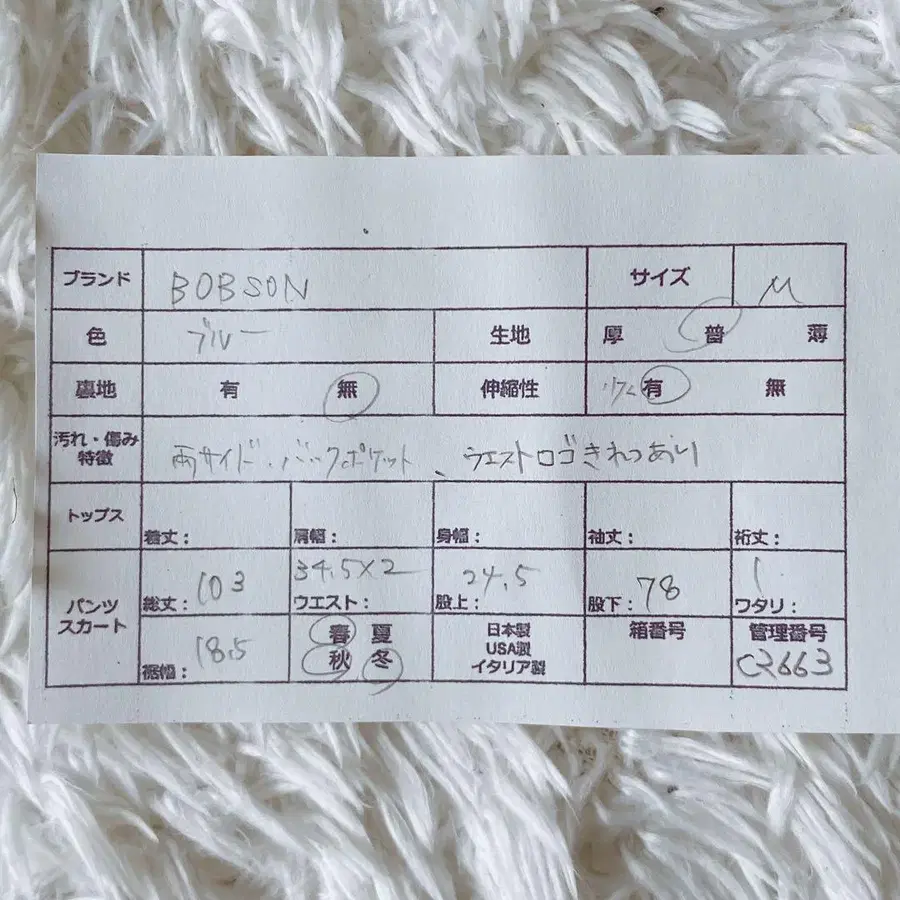 ブランド BOBSON サイズ M
色 ブルー 生地 厚 普 薄
裏地 有 無 伸縮性 有 無
汚れ・傷み
特徴 両サイド・バックポケット、ウエストロゴきれつあり
トップス 着丈: 肩幅: 身幅: 袖丈: 裄丈:
パンツ
スカート
総丈: 103 34.5×2 ウエスト: 24.5 股上: 股下: 78 ワタリ:
裾幅: 18.5
春 夏
秋 冬
日本製
USA製
イタリア製
箱番号
管理番号
C2663